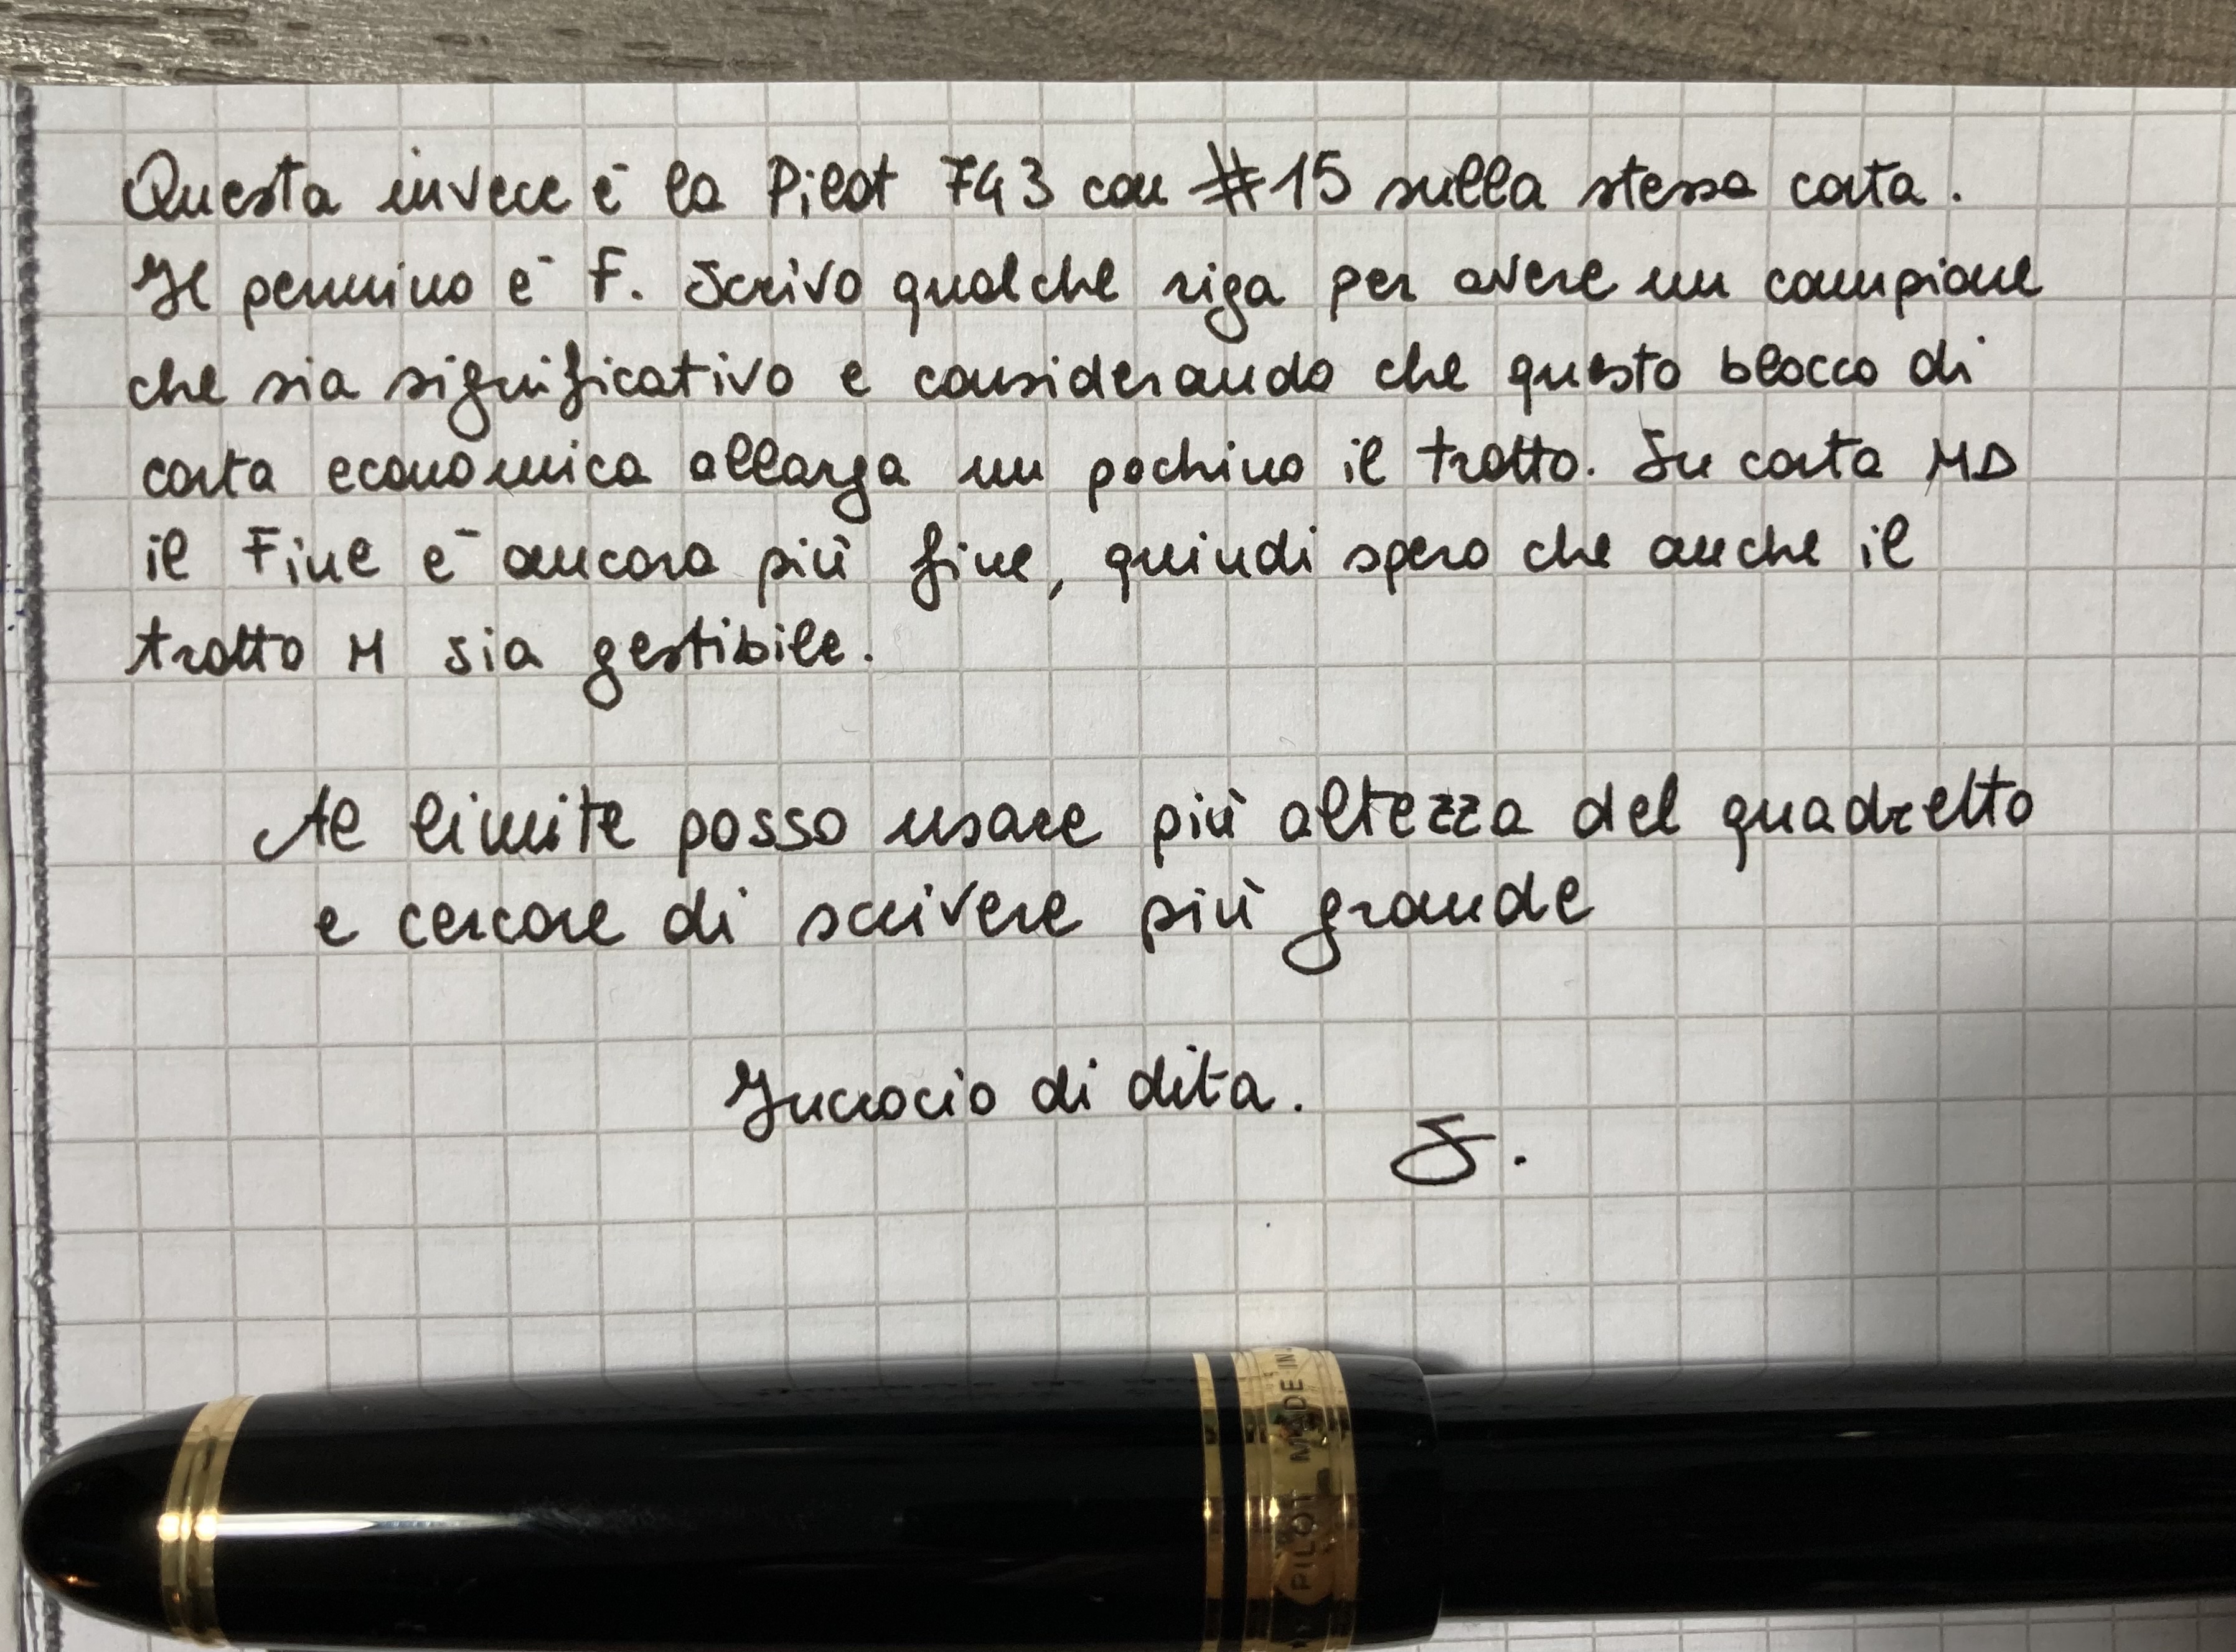 Questa invece è la Pilot 743 con #15 sulla stessa carta.
Il pennino è F. Scrivo qualche riga per avere un campione
che sia significativo e considerando che questo blocco di
carta economica allarga un pochino il tratto. Su carta MD
il Fine è ancora più fine, quindi spero che anche il
tratto M sia gestibile.
Al limite posso usare più altezza del quadretto
e cercare di scrivere più grande
Incrocio di dita.
S.
PILOT MADE IN